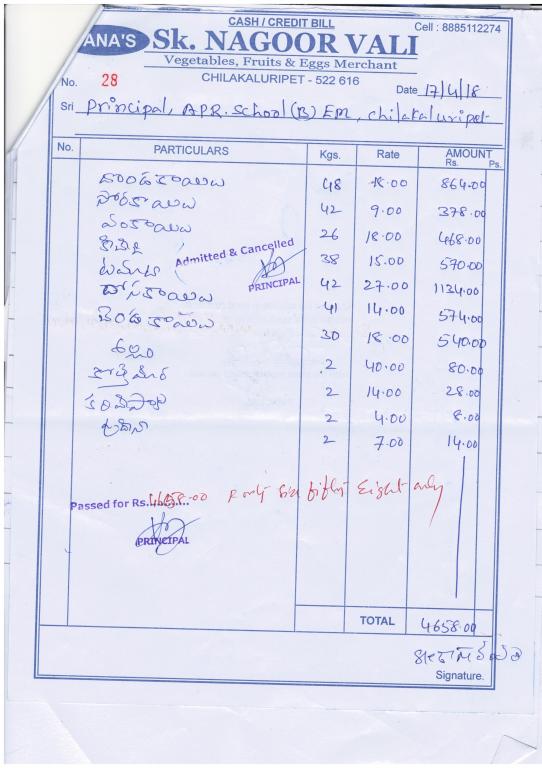 CASH / CREDIT BILL
Cell : 8885112274
ANA'S Sk. NAGOOR VALI
Vegetables, Fruits & Eggs Merchant
CHILAKALURIPET - 522 616
No. 28
Date 17/4/18
Sri Principal, APR. School (B) EM, Chilakaluripet
No. PARTICULARS Kgs. Rate AMOUNT
Rs. Ps.
దొండకాయలు 48 18.00 864.00
దోరకాయలు 42 9.00 378.00
వంకాయలు 26 18.00 468.00
38 15.00 570.00
టమాటా 42 27.00 1134.00
దోసకాయలు 41 14.00 574.00
బెండకాయలు 30 18.00 540.00
అల్లం 2 40.00 80.00
కొత్తిమీర 2 14.00 28.00
కరివేపాకు 2 4.00 8.00
పుదీనా 2 7.00 14.00
Admitted & Cancelled
PRINCIPAL
Passed for Rs. 4658.00 six fifty Eight only
PRINCIPAL
TOTAL 4658.00
Signature.